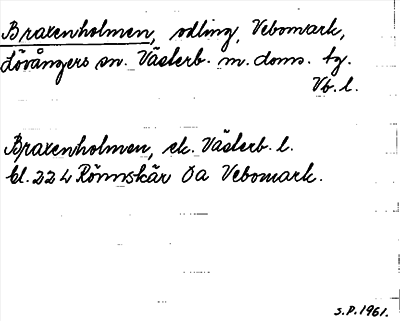 Braxenholmen, odling, Vebomark,
Lövångers sn. Västerb. m. doms. tg.
Vb. l.
Braxenholmen, ek. Västerb. l.
bl. 224 Rönnskär öa Vebomark.
S.P. 1961.